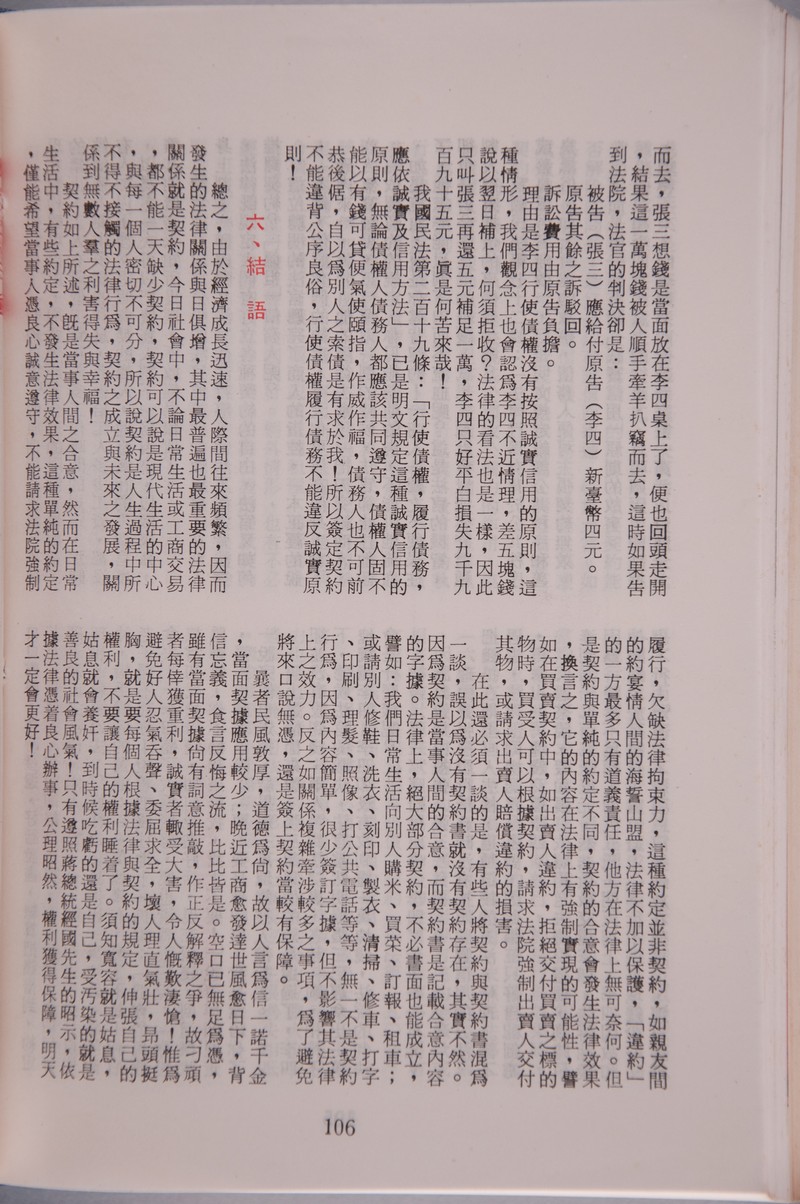 而去，張三想錢是當面放在李四桌上了，便也回頭走開
，結果這一萬塊錢被人順手牽羊扒竊而去，這時如果告
到法院，法官的判決卻是：
被告（張三）應給付原告（李四）新臺幣四元。
原告其餘之訴駁回。
訴訟費用由原告負擔。
理由是李四行使債權沒有按照誠實信用的原則，這
種情形，我們觀念上也會認爲李四不近情理，差五塊錢
說以翌日補上，何須拒收？法律的看法也是一樣，因此
只叫張三再還五元補足一萬，李四只好平白損失九千九
百九十五元，眞是何苦來哉！
我國民法第二百十九條：「行使債權，履行債務，
應依誠實及信用方法」，已是明文規定這種誠實信用的
原則，無論債權人債務人都應該共同遵守，債權人固不
能以有錢可貸便氣使頤指，作威作福，債務人也不可前
恭後倨，自以爲別人之索債是有求於我！所以簽定契約
不能違背公序良俗，行使債權履行債務不能違反誠實原
則！
六、結語
總之，由於經濟成長迅速，人際間往來頻繁，因而
發生的法律關係與日俱增，其中最普遍也最重要的法律
關係就是契約，今日社會中，不論日常生活或工商交易
，都不能一天缺少契約，契約可以說是現代生活的中心
，與每一個人密切不可分，所以說契約是人生過程中所
不得不接觸的法律行爲，契約之成立與未來之發展，關
係到無數人羣之利害得失與幸福！
契約如上所述，旣是當事人間之合意，然而在日常
生活中，有些約定，不發生法律效果，這種單純的約定
，僅能希望當事人憑良心誠意遵守，不能請求法院強制
履行，欠缺法律拘束力，這種約定並非契約，如親友間
的約宴情人間的海誓山盟，法律不加以保護，「違約」
的一方最多只有道義責任，他方在法律上無可奈何。但
是契約與單純的約定不同，契約的合意會發生法律效果
，換言之，它的內容在法律上有強制實現的可能性，譬
如在買賣契約中，如出賣人違約，拒絕交付買賣之標的
物時，買受人可以根據契約，請求法院強制出賣人交付
其物，或請求出賣人賠償違約的損害。
在此還必須一談的是，有些人將契約與契約書混爲
一談，誤以爲沒有契約書就沒有契約存在，其實不然。
因爲契約是當事人間的合意，而契約書是記載合意內容
的字據。法律上，絕大部分契約，不必書面也能成立，
譬如：我們日常生活向別人購米、買菜、訂報、租車；
或請別人修鞋、洗衣、刻印、製衣、清掃、修車、打字
、印刷、理髮、照像、打公共電話等等，無一不是契約
行爲，因爲內容簡單，很少簽訂字據，但不影響其法律
上之效力。反之如關係複雜牽涉較多之事項，爲了避免
將來口說無憑，還是簽上契約當較有保障。
曩者民風敦厚，道德爲尙，故以人言爲信一諾千金
，當面契據應用較少；晚近工商愈發達世風愈日下，背
信忘義，食言反悔之流，比比皆是。空口已無足爲憑，
雖有當面契據尙有詞意推敲，作正反解釋之爭，故刁頑
者每倖獲重利，誠實者輒受大害，令人慨歎淒愴！惟爲
避免好人忍氣吞聲、委屈求全，壞人理直氣壯，昂頭挺
胸，就是要每個人根據法律與契約的規定，伸張自己的
權利，不要讓自己的權利睡着了。須知寬容就是姑息，
姑息就會養奸，到時候吃虧的還是自己，受汚染的就是
善良的社會風氣！只有遵照蔣總統經國先生的昭示，依
據法律憑着良心辦事，公理昭然，權利獲得保障，明天
才一定會更好！
106